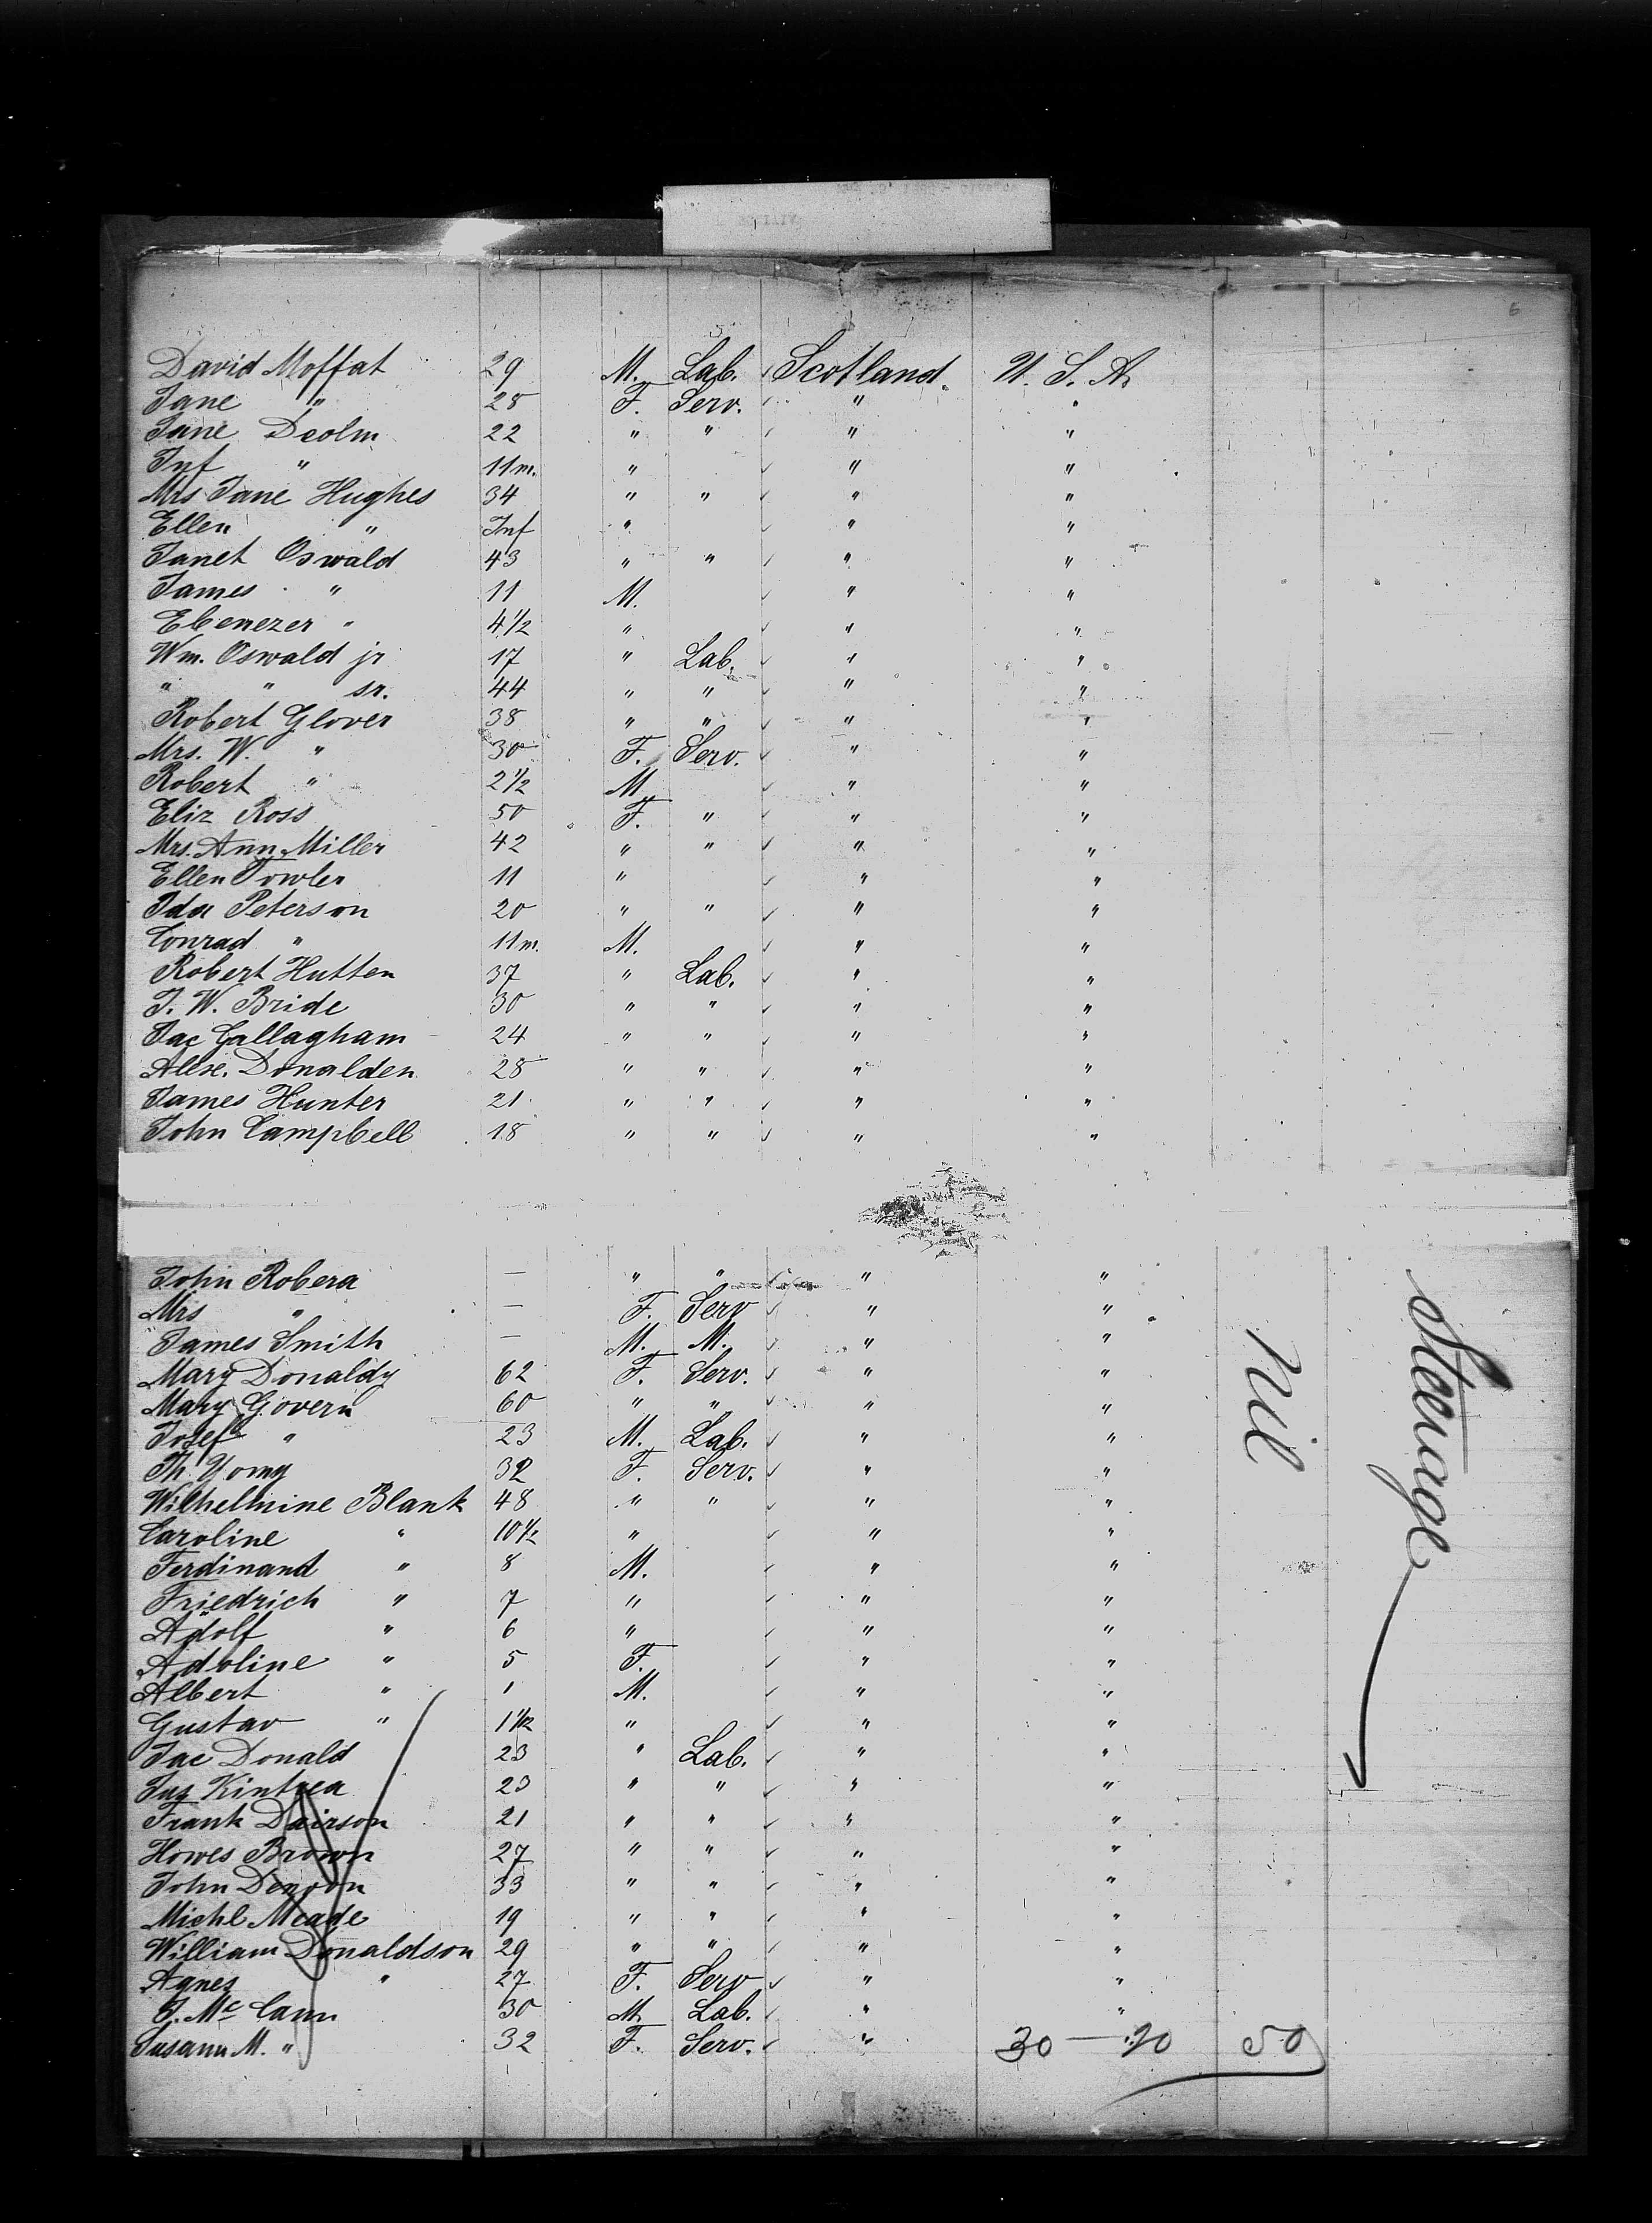 David Moffat 29 M. Lab. Scotland. U. S. A.
Jane " 28 F. Serv. " "
Jane Deolm 22 " " " "
Inf " 11m. " " "
Mrs Jane Hughes 34 " " " "
Ellen " Inf " " "
Janet Oswald 43 " " " "
James " 11 M. " "
Ebenezer " 4 1/2 " " "
Wm. Oswald jr 17 " Lab. " "
" " sr. 44 " " " "
Robert Glover 38 " " " "
Mrs. W. " 30 F. Serv. " "
Robert " 2 1/2 M " "
Eliz Ross 50 F. " " "
Mrs. Ann Miller 42 " " " "
Ellen Fowler 11 " " "
Ida Peterson 20 " " " "
Conrad " 11m. M. " "
Robert Hutten 37 " Lab. " "
J. W. Bride 30 " " " "
Jac Gallagham 24 " " " "
Alex. Donalden 28 " " " "
James Hunter 21 " " " "
John Campbell 18 " " " "
John Robera — " " " "
Mrs " — F. Serv " "
James Smith — M. M. " "
Mary Donaldy 62 F. Serv. " "
Mary Govern 60 " " " "
Josef " 23 M. Lab. " "
Th. Yomg 32 F. Serv. " "
Wilhelmine Blank 48 " " " "
Caroline " 10 1/2 " " "
Ferdinand " 8 M. " "
Friedrich " 7 " " "
Adolf " 6 " " "
Adoline " 5 F. " "
Albert " 1 M. " "
Gustav " 1 1/2 " " "
Jac Donald 23 " Lab. " "
Kintrea 23 " " " "
Frank Dairson 21 " " " "
Howes Brown 27 " " " "
John 33 " " " "
Michl Meade 19 " " " "
William Donaldson 29 " " " "
Agnes " 27 F. Serv " "
J. Mc Cann 30 M. Lab. " "
Susann M. " 32 F. Serv. " 30 — 20 50
Nil
Steerage